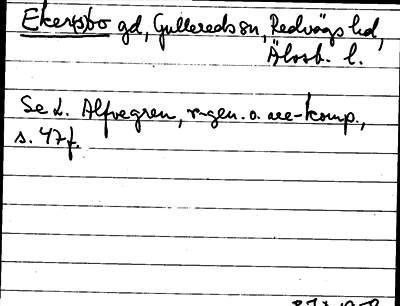 Ekersbo gd, Gullereds sn, Redvägs hd,
Älvsb. l.
Se L. Alfvegren, r-gen. o. are-komp.,
s. 47 f.